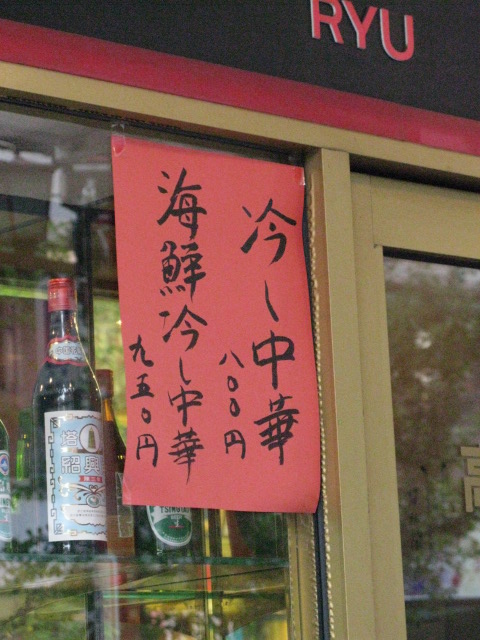 RYU
冷し中華
八〇〇円
海鮮冷し中華
九五〇円
塔
紹興
TSINGTAO